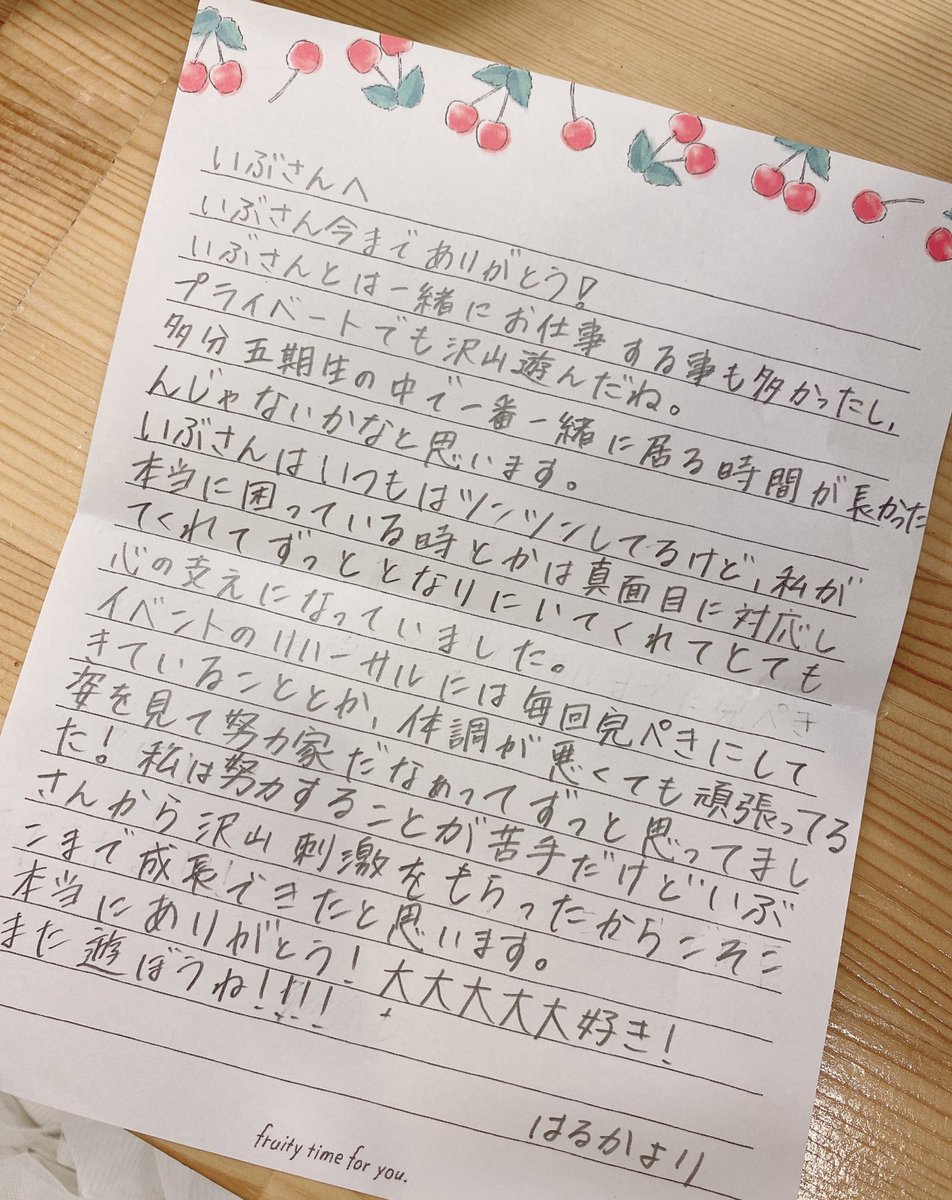 いぶさんへ
いぶさん今までありがとう!
いぶさんとは一緒にお仕事する事も多かったし、
プライベートでも沢山遊んだね。
多分五期生の中で一番一緒に居る時間が長かった
んじゃないかなと思います。
いぶさんはいつもはツンツンしてるけど、私が
本当に困っている時とかは真面目に対応し
てくれてずっととなりにいてくれてとても
心の支えになっていました。
イベントのリハーサルには毎回完ぺきにして
きていることとか、体調が悪くても頑張ってる
姿を見て努力家だなぁってずっと思ってまし
た!私は努力することが苦手だけどいぶ
さんから沢山刺激をもらったからこそこ
こまで成長できたと思います。
本当にありがとう!大大大大大好き!
また遊ぼうね!!!!
はるかより
fruity time for you.